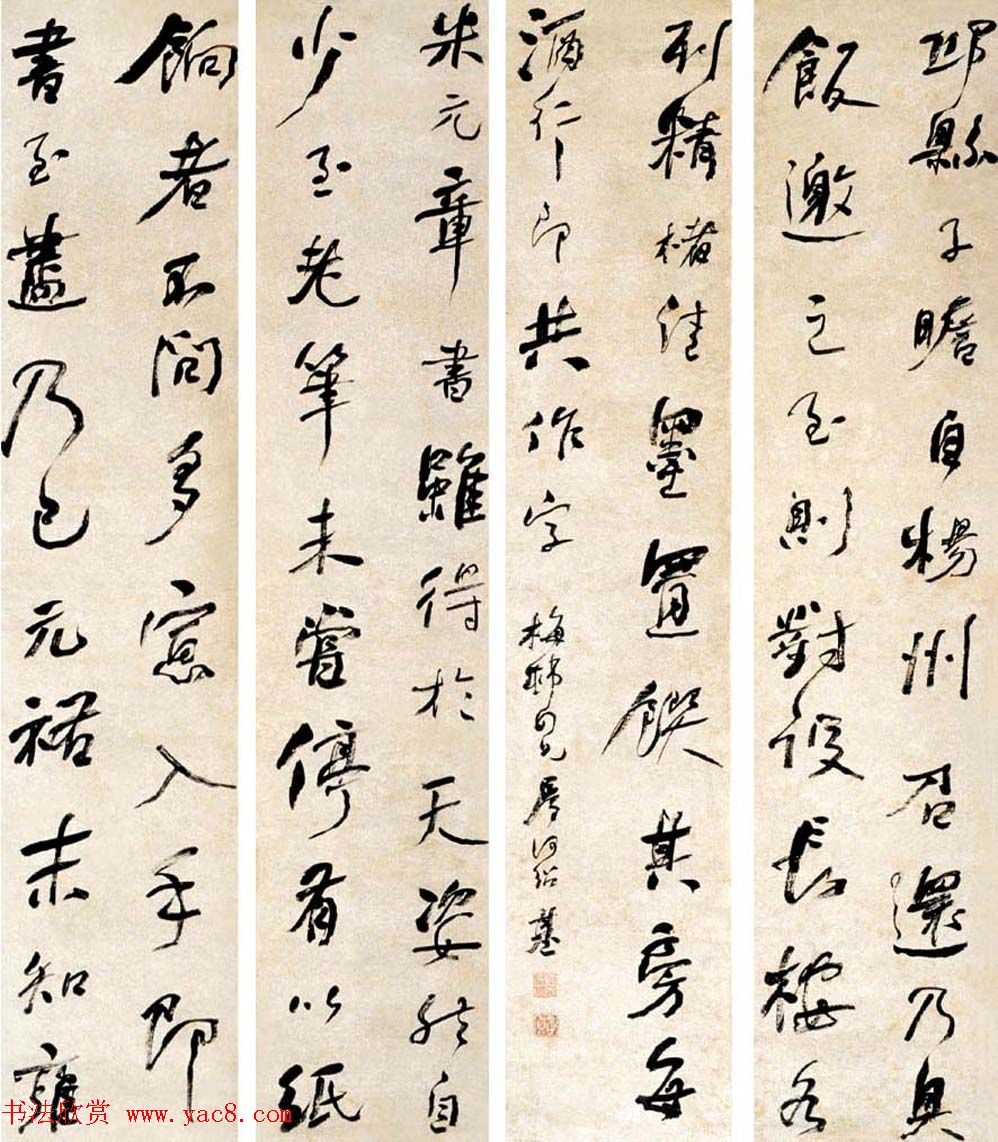 米元章書雖得於天姿然自
少至老筆未嘗停有以紙
餉者不問多寡入手即
書至盡乃已元祐末知雍
邱縣子瞻自楊州召還乃具
飯邀之至則對設長桉各
列精楮佳墨置饌其旁每
酒行即共作字
梅 四兄屬何紹基
书法欣赏 www.yac8.com